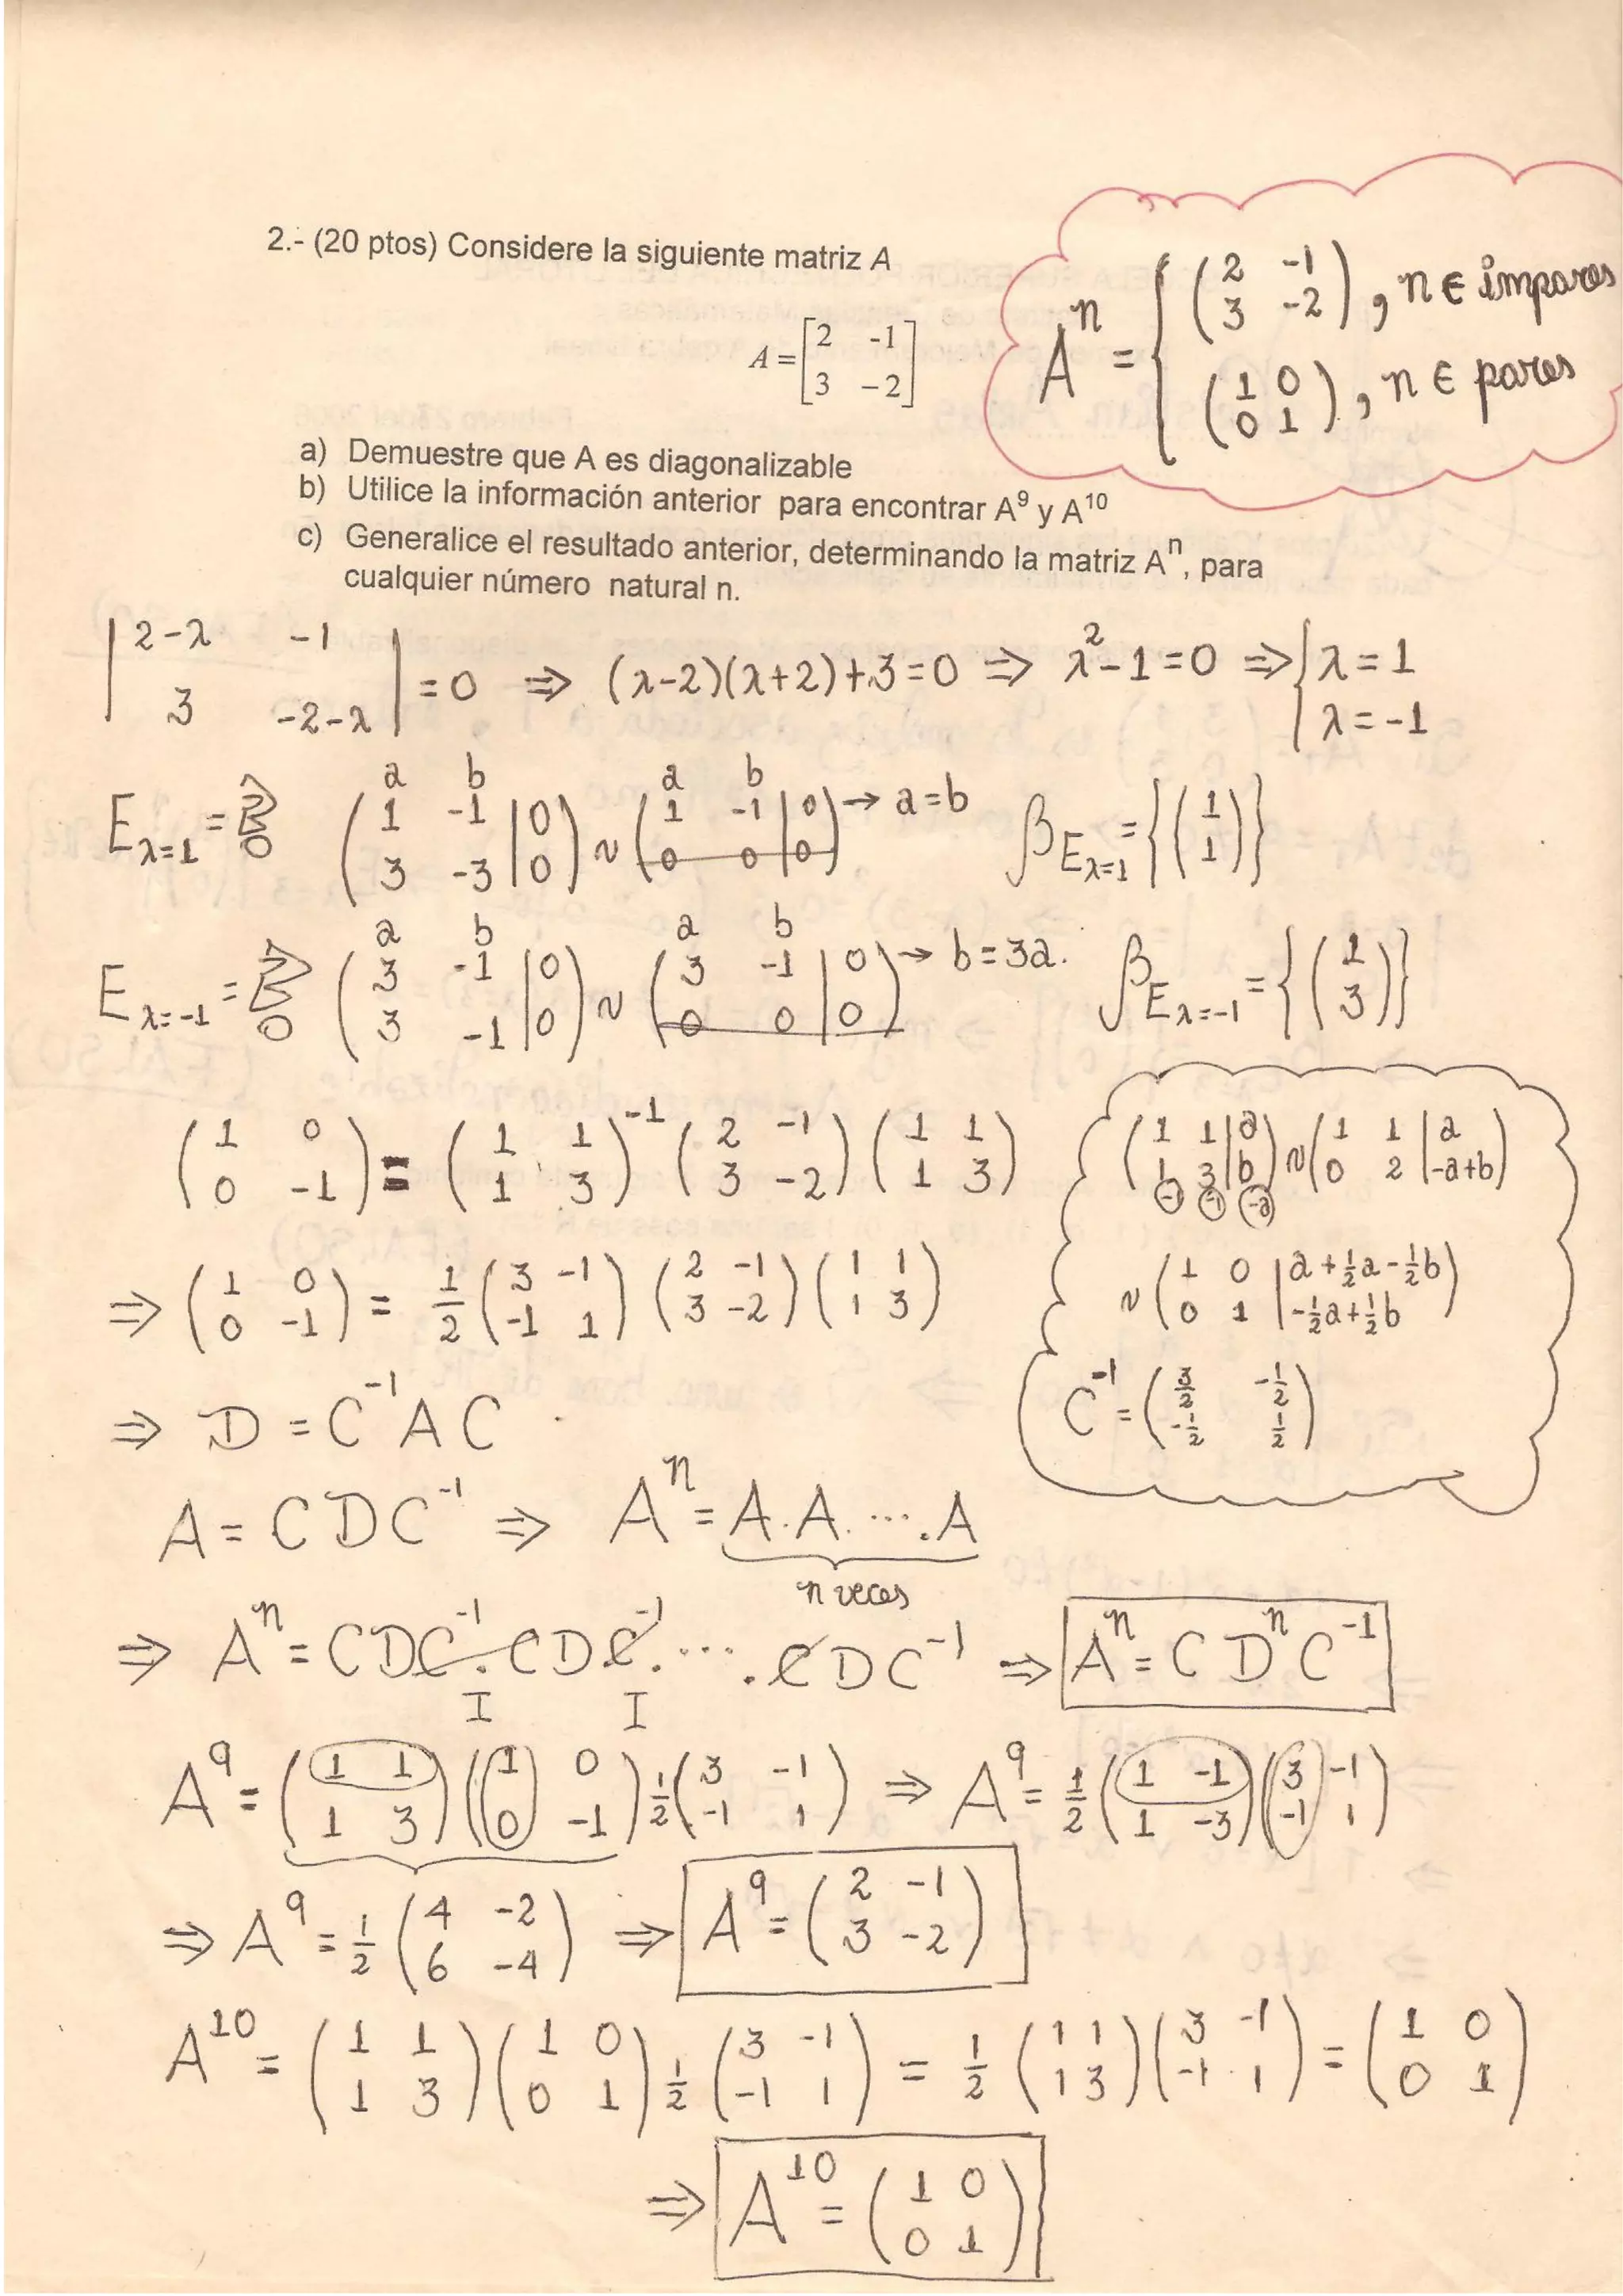 2.- (20 ptos) Considere la siguiente matriz A
A = [2 -1; 3 -2]
A^n = { (2 -1; 3 -2), n ∈ impares
(1 0; 0 1), n ∈ pares
a) Demuestre que A es diagonalizable
b) Utilice la información anterior para encontrar A^9 y A^10
c) Generalice el resultado anterior, determinando la matriz A^n, para
cualquier número natural n.
|2-λ -1; 3 -2-λ| = 0 ⇒ (λ-2)(λ+2)+3=0 ⇒ λ^2-1=0 ⇒ { λ=1
λ=-1
a b a b
E_λ=1 = (1 -1 | 0; 3 -3 | 0) ~ (1 -1 | 0; 0 0 | 0) → a=b β_E_λ=1 = {(1; 1)}
a b a b
E_λ=-1 = (3 -1 | 0; 3 -1 | 0) ~ (3 -1 | 0; 0 0 | 0) → b=3a. β_E_λ=-1 = {(1; 3)}
(1 0; 0 -1) = (1 1; 1 3)^-1 (2 -1; 3 -2) (1 1; 1 3)
(1 1 | a; 1 3 | b) ~ (1 1 | a; 0 2 | -a+b)
-1 -1 -a
⇒ (1 0; 0 -1) = 1/2 (3 -1; -1 1) (2 -1; 3 -2) (1 1; 1 3)
~ (1 0 | a+1/2a-1/2b; 0 1 | -1/2a+1/2b)
⇒ D = C^-1 A C
C^-1 = (3/2 -1/2; -1/2 1/2)
A = C D C^-1 ⇒ A^n = A.A.....A
n veces
⇒ A^n = C D C^-1 . C D C^-1 ..... C D C^-1 ⇒ A^n = C D^n C^-1
I I
A^9 = (1 1; 1 3) (1 0; 0 -1) 1/2 (3 -1; -1 1) ⇒ A^9 = 1/2 (1 -1; 1 -3) (3 -1; -1 1)
⇒ A^9 = 1/2 (4 -2; 6 -4) ⇒ A^9 = (2 -1; 3 -2)
A^10 = (1 1; 1 3) (1 0; 0 1) 1/2 (3 -1; -1 1) = 1/2 (1 1; 1 3) (3 -1; -1 1) = (1 0; 0 1)
⇒ A^10 = (1 0; 0 1)